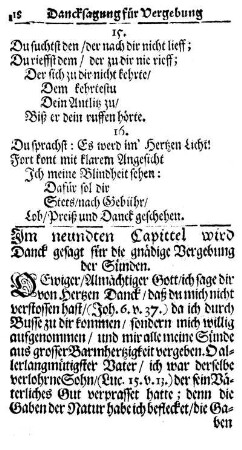 18 Dancksagung für Vergebung
15.
Du suchtst den / der nach dir nicht lieff;
Du rieffst dem / der zu dir nie rieff;
Der sich zu dir nicht kehrte /
Dem kehrtestu
Dein Antlitz zu /
Biß er dein ruffen hörte.
16.
Du sprachst: Es werd im' Hertzen Licht!
Fort kont mit klarem Angesicht
Ich meine Blindheit sehen:
Dafür sol dir
Stets / nach Gebühr /
Lob / Preiß und Danck geschehen.
Im neundten Capittel wird
Danck gesagt für die gnädige Vergebung
der Sünden.
O Ewiger / Almächtiger Gott / ich sage dir
von Hertzen Danck / daß du mich nicht
verstossen hast / (Joh. 6. v. 37.) da ich durch
Busse zu dir kommen / sondern mich willig
aufgenommen / und mir alle meine Sünde
aus grosser Barmhertzigkeit vergeben. O al-
lerlangmütigster Vater / ich war derselbe
verlohrne Sohn / (Luc. 15. v. 13.) der sein Vä-
terliches Gut verprasset hatte; denn die
Gaben der Natur habe ich beflecket / die Ga-
ben